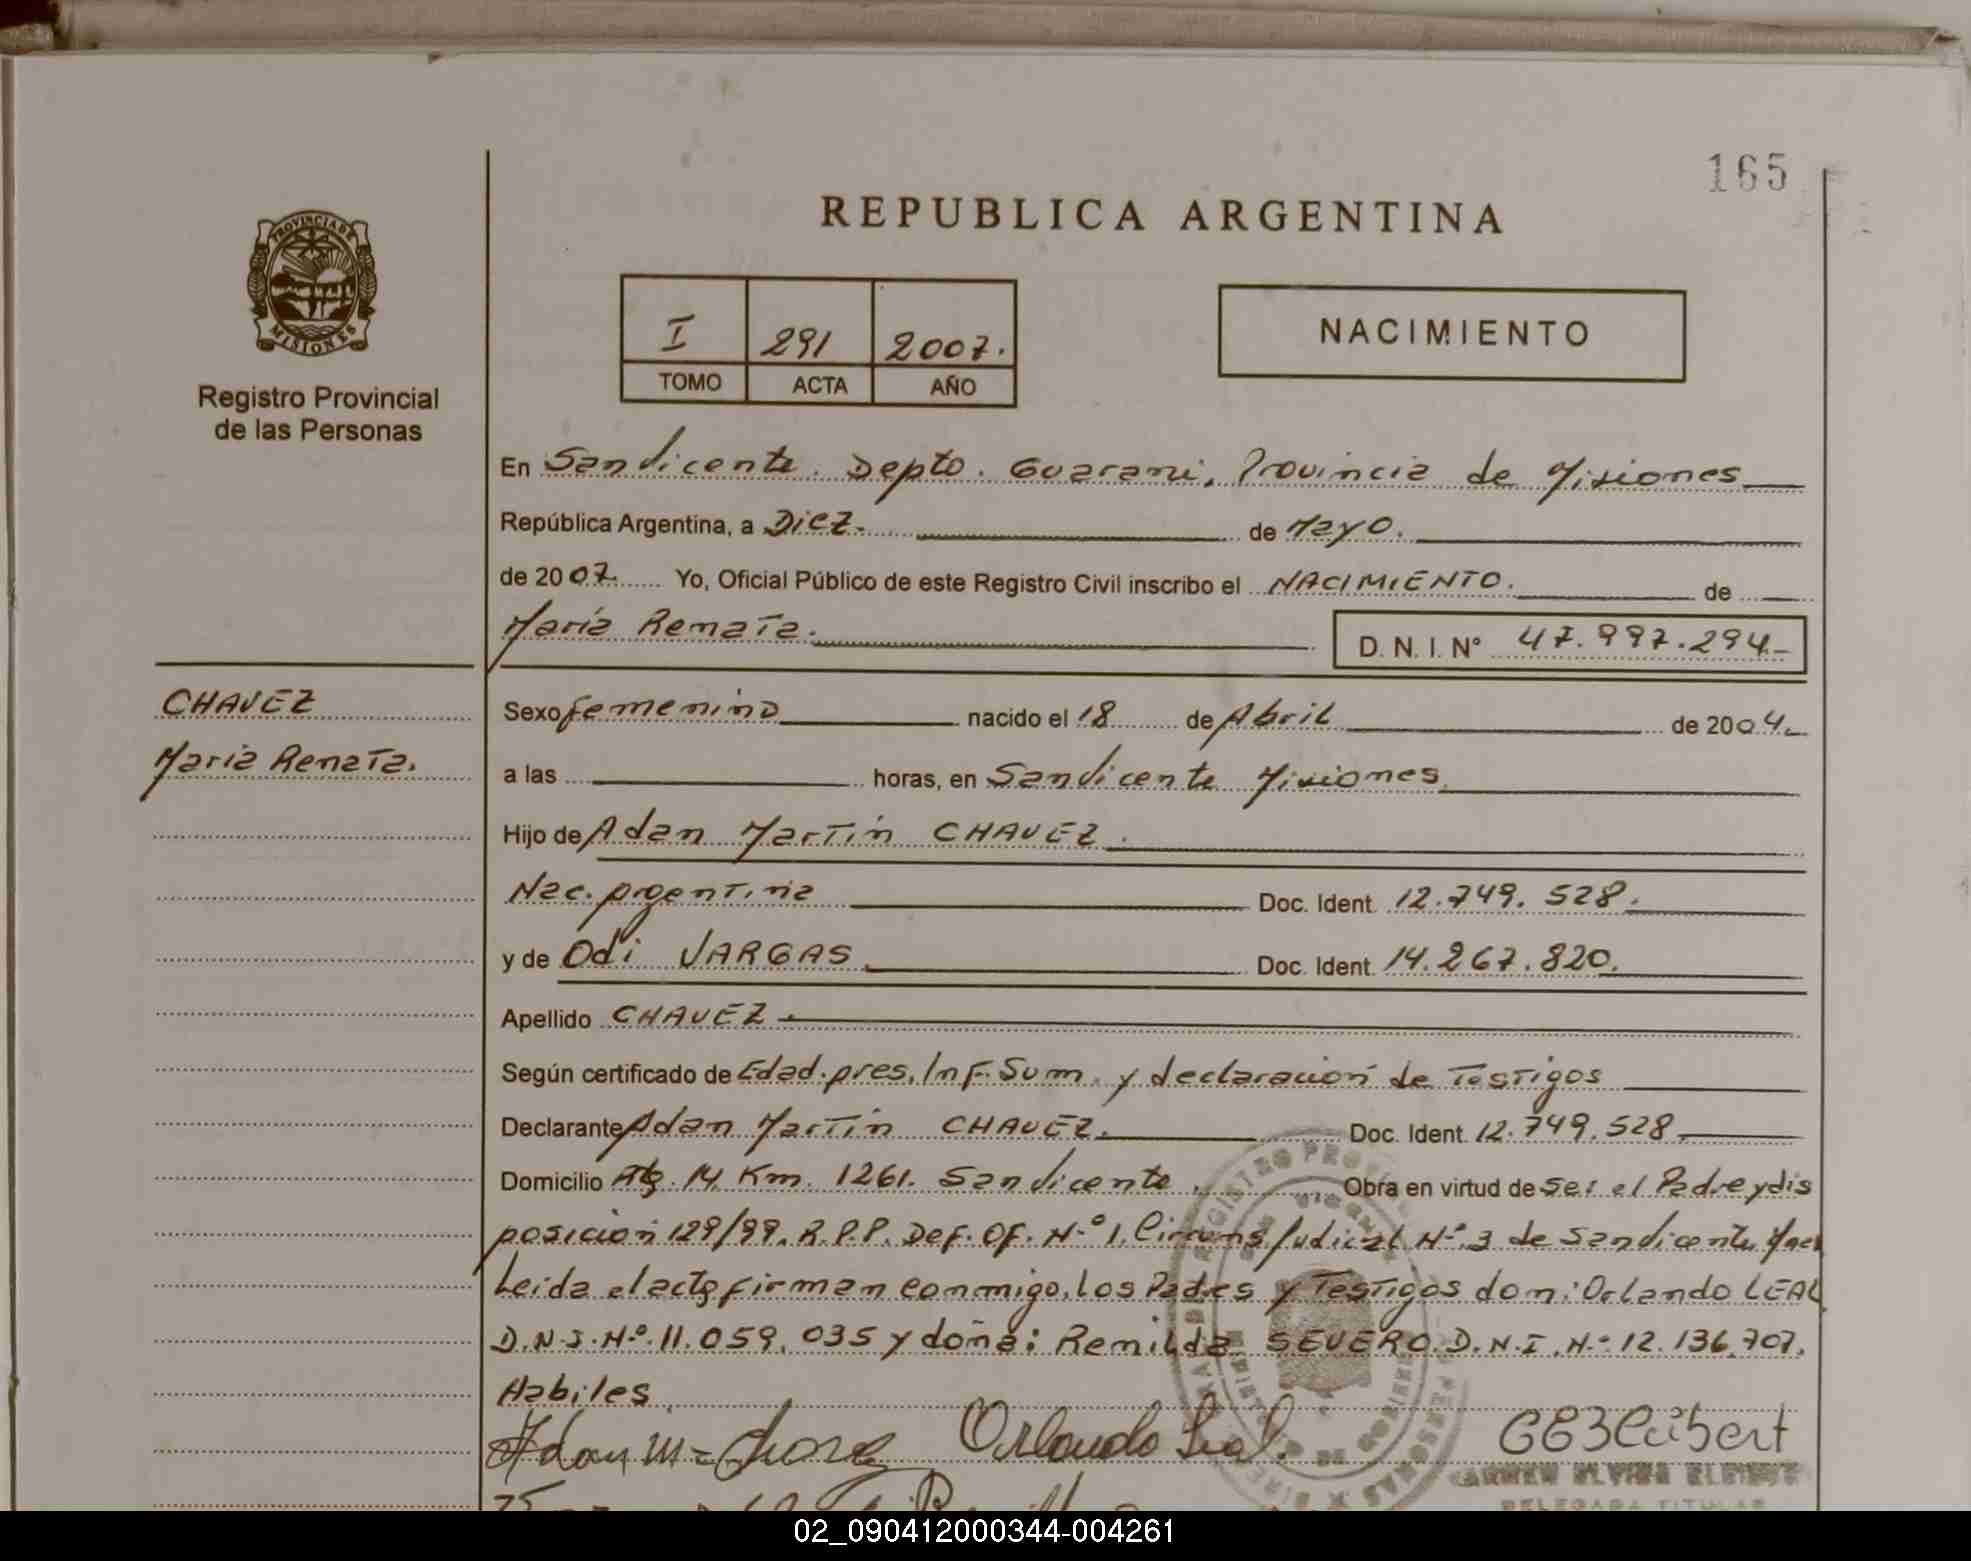 165
REPUBLICA ARGENTINA
PROVINCIA DE
MISIONES
Registro Provincial
de las Personas
I 291 2007.
TOMO ACTA AÑO
NACIMIENTO
En San Vicente. Depto. Guarani, Provincia de Misiones
República Argentina, a Diez. de Mayo.
de 2007. Yo, Oficial Público de este Registro Civil inscribo el NACIMIENTO. de
María Renata.
D. N. I. Nº 47.997.294.-
CHAVEZ
Maria Renata.
Sexo femenino nacido el 18 de Abril de 2004.
a las horas, en San Vicente Misiones.
Hijo de Adan Martín CHAVEZ.
Nac. Argentina Doc. Ident. 12.749.528.
y de Odi VARGAS Doc. Ident. 14.267.820.
Apellido CHAVEZ.
Según certificado de Edad. pres. Inf. Sum. y declaración de Testigos
Declarante Adan Martín CHAVEZ. Doc. Ident. 12.749.528
Domicilio 14 Km. 1261. San Vicente. Obra en virtud de ser el Padre y dis
posición 129/99. R.P.P. Def. Of. N.º 1. Circuns. Judicial N.º 3 de San Vicente
Leida el acta firman conmigo, los Padres y Testigos don: Orlando LEAL
D.N.I. N.º 11.059.035 y doña: Remilda SEVERO. D.N.I. N.º 12.136.707.
Habiles
Orlando Leal.
CARMEN ELVIRA
DELEGADA TITULAR
02_090412000344-004261